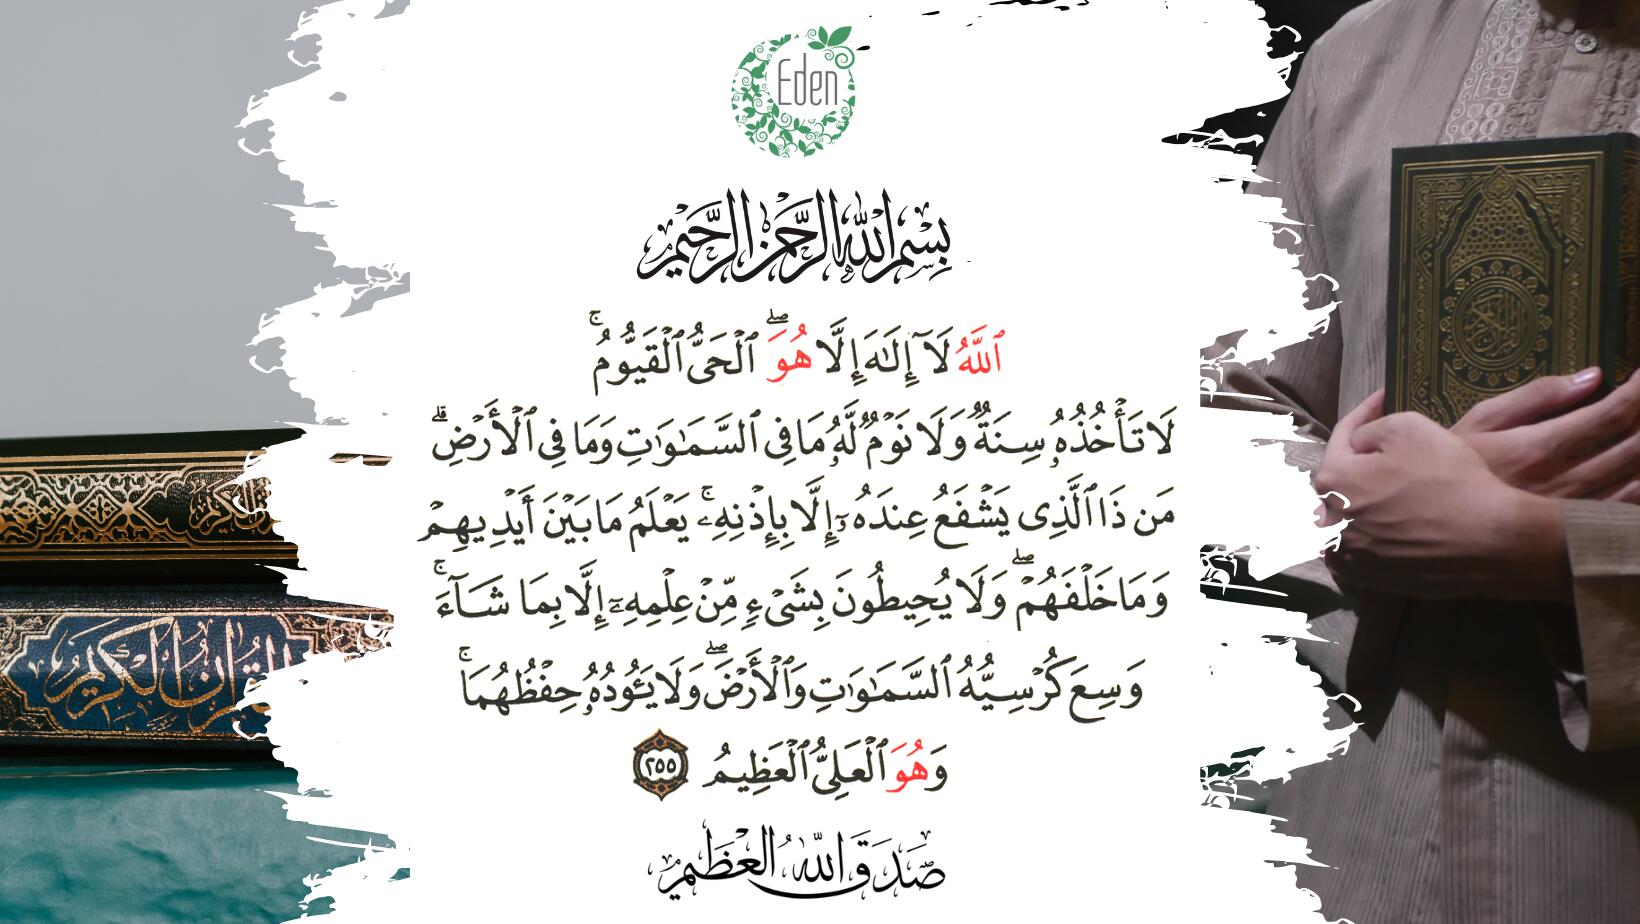 Eden
بِسْمِ اللهِ الرَّحْمَنِ الرَّحِيمِ
ٱللَّهُ لَآ إِلَٰهَ إِلَّا هُوَ ۖ ٱلْحَىُّ ٱلْقَيُّومُ ۚ
لَا تَأْخُذُهُۥ سِنَةٌ وَلَا نَوْمٌ لَّهُۥ مَا فِى ٱلسَّمَٰوَٰتِ وَمَا فِى ٱلْأَرْضِ ۗ
مَن ذَا ٱلَّذِى يَشْفَعُ عِندَهُۥٓ إِلَّا بِإِذْنِهِۦ ۚ يَعْلَمُ مَا بَيْنَ أَيْدِيهِمْ
وَمَا خَلْفَهُمْ ۖ وَلَا يُحِيطُونَ بِشَىْءٍ مِّنْ عِلْمِهِۦٓ إِلَّا بِمَا شَآءَ ۚ
وَسِعَ كُرْسِيُّهُ ٱلسَّمَٰوَٰتِ وَٱلْأَرْضَ ۖ وَلَا يَـُٔودُهُۥ حِفْظُهُمَا ۚ
وَهُوَ ٱلْعَلِىُّ ٱلْعَظِيمُ ٢٥٥
صَدَقَ اللهُ الْعَظِيمُ
القرآن الكريم